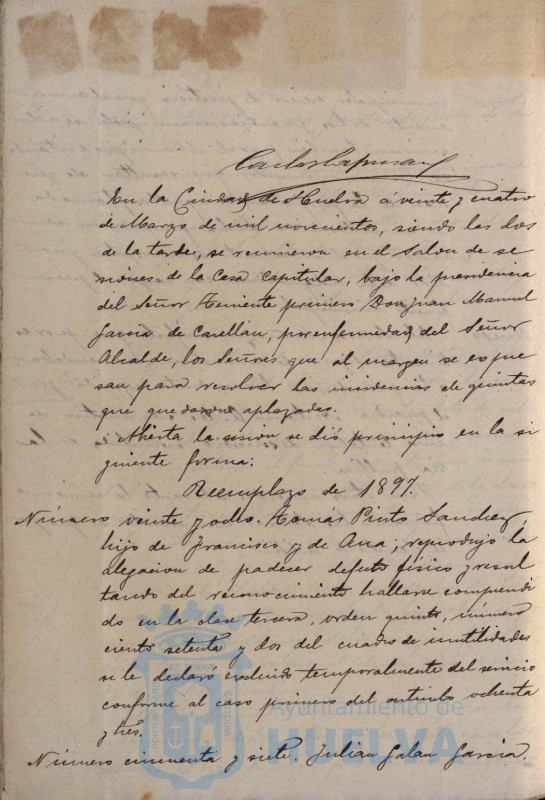 En la Ciudad de Huelva á veinte y cuatro
de Marzo de mil novecientos, siendo las dos
de la tarde, se reunieron en el Salon de se
siones de la Casa Capitular, bajo la presidencia
del Señor Teniente primero Don Juan Manuel
Garcia de por enfermedad del Señor
Alcalde, los Señores que al margen se expre
san para resolver las incidencias de quintas
que quedaron aplazadas.
Abierta la sesion se dió principio en la si
guiente forma:
Reemplazo de 1897.
Número veinte y ocho. Tomás Pinto Sanchez,
hijo de Francisco y de Ana; reprodujo la
alegacion de padecer defecto físico y resul
tando del reconocimiento hallarse comprendi
do en la clase tercera, orden quinto, número
ciento setenta y dos del cuadro de inutilidades
se le declaró excluido temporalmente del servicio
conforme al caso primero del artículo ochenta
y tres.
Número cincuenta y siete. Julian Galan Garcia.
Ayuntamiento de
HUELVA